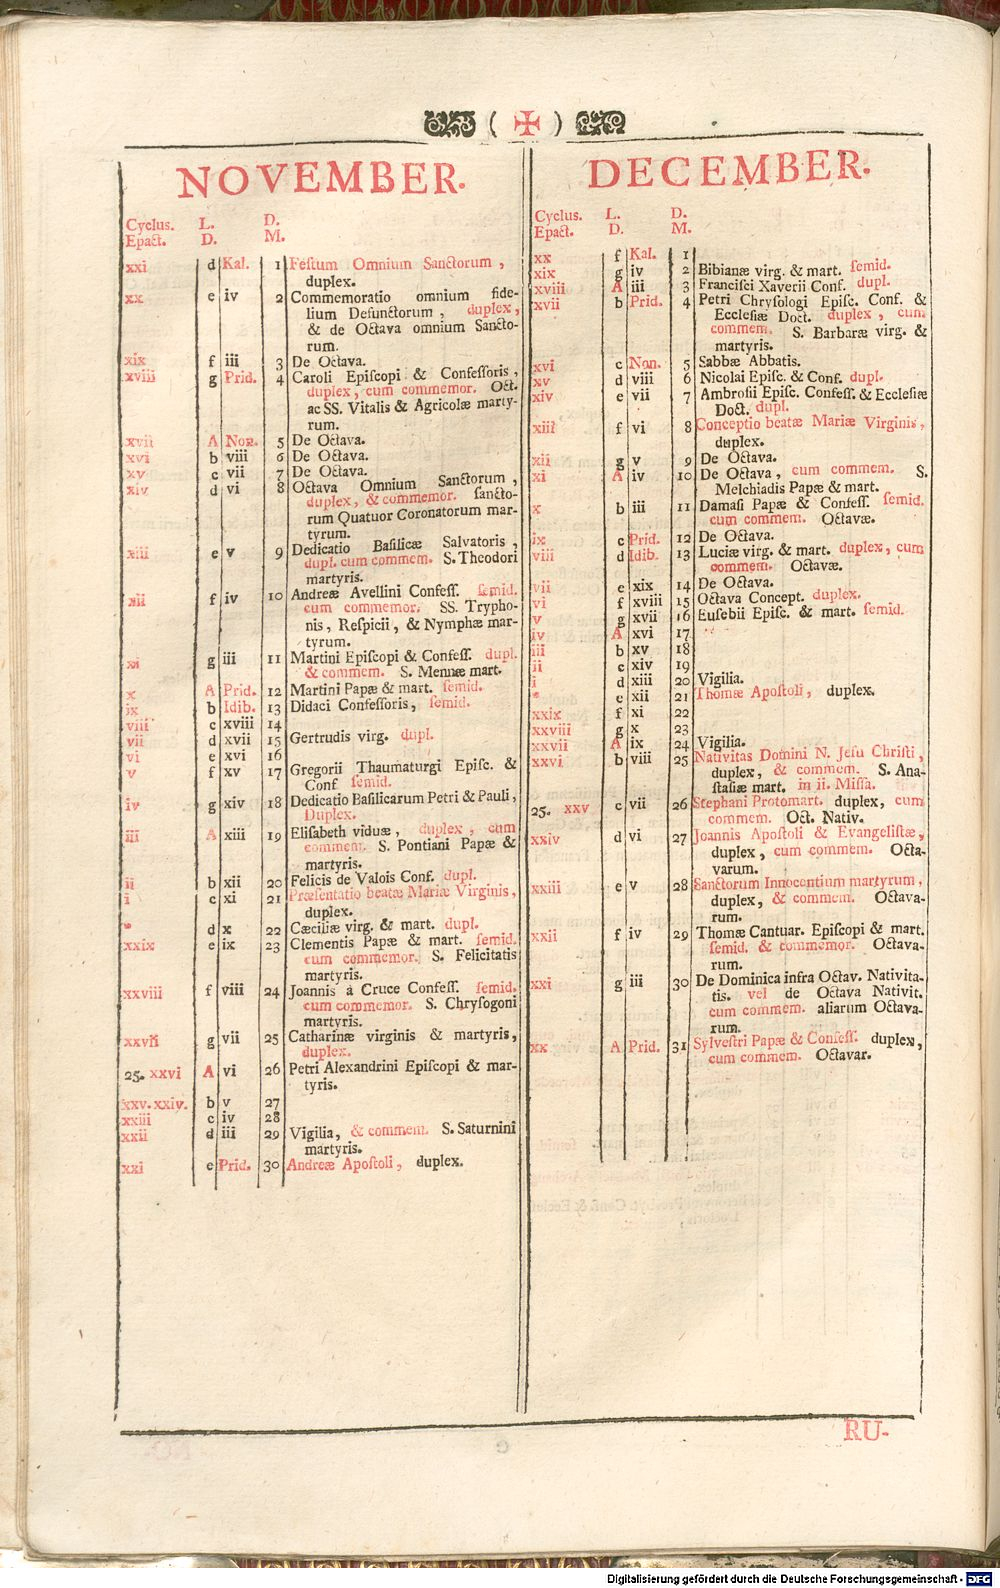 ( ✠ )
NOVEMBER.
Cyclus. L. D.
Epact. D. M.
xxi d Kal. 1 Festum Omnium Sanctorum,
duplex.
xx e iv 2 Commemoratio omnium fide-
lium Defunctorum, duplex,
& de Octava omnium Sancto-
rum.
xix f iii 3 De Octava.
xviii g Prid. 4 Caroli Episcopi & Confessoris,
duplex, cum commemor. Oct.
ac SS. Vitalis & Agricolæ marty-
rum.
xvii A Non. 5 De Octava.
xvi b viii 6 De Octava.
xv c vii 7 De Octava.
xiv d vi 8 Octava Omnium Sanctorum,
duplex, & commemor. sancto-
rum Quatuor Coronatorum mar-
tyrum.
xiii e v 9 Dedicatio Basilicæ Salvatoris,
dupl. cum commem. S. Theodori
martyris.
xii f iv 10 Andreæ Avellini Confess. semid.
cum commemor. SS. Trypho-
nis, Respicii, & Nymphæ mar-
tyrum.
xi g iii 11 Martini Episcopi & Confess. dupl.
& commem. S. Mennæ mart.
x A Prid. 12 Martini Papæ & mart. semid.
ix b Idib. 13 Didaci Confessoris, semid.
viii c xviii 14
vii d xvii 15 Gertrudis virg. dupl.
vi e xvi 16
v f xv 17 Gregorii Thaumaturgi Episc. &
Conf. semid.
iv g xiv 18 Dedicatio Basilicarum Petri & Pauli,
Duplex.
iii A xiii 19 Elisabeth viduæ, duplex, cum
commem. S. Pontiani Papæ &
martyris.
ii b xii 20 Felicis de Valois Conf. dupl.
i c xi 21 Præsentatio beatæ Mariæ Virginis,
duplex.
* d x 22 Cæciliæ virg. & mart. dupl.
xxix e ix 23 Clementis Papæ & mart. semid.
cum commemor. S. Felicitatis
martyris.
xxviii f viii 24 Joannis à Cruce Confess. semid.
cum commemor. S. Chrysogoni
martyris.
xxvii g vii 25 Catharinæ virginis & martyris,
duplex.
25. xxvi A vi 26 Petri Alexandrini Episcopi & mar-
tyris.
xxv. xxiv. b v 27
xxiii c iv 28
xxii d iii 29 Vigilia, & commem. S. Saturnini
martyris.
xxi e Prid. 30 Andreæ Apostoli, duplex.
DECEMBER.
Cyclus. L. D.
Epact. D. M.
xx f Kal. 1
xix g iv 2 Bibianæ virg. & mart. semid.
xviii A iii 3 Francisci Xaverii Conf. dupl.
xvii b Prid. 4 Petri Chrysologi Episc. Conf. &
Ecclesiæ Doct. duplex, cum
commem. S. Barbaræ virg. &
martyris.
xvi c Non. 5 Sabbæ Abbatis.
xv d viii 6 Nicolai Episc. & Conf. dupl.
xiv e vii 7 Ambrosii Episc. Confess. & Ecclesiæ
Doct. dupl.
xiii f vi 8 Conceptio beatæ Mariæ Virginis,
duplex.
xii g v 9 De Octava.
xi A iv 10 De Octava, cum commem. S.
Melchiadis Papæ & mart.
x b iii 11 Damasi Papæ & Confess. semid.
cum commem. Octavæ.
ix c Prid. 12 De Octava.
viii d Idib. 13 Luciæ virg. & mart. duplex, cum
commem. Octavæ.
vii e xix 14 De Octava.
vi f xviii 15 Octava Concept. duplex.
v g xvii 16 Eusebii Episc. & mart. semid.
iv A xvi 17
iii b xv 18
ii c xiv 19
i d xiii 20 Vigilia.
* e xii 21 Thomæ Apostoli, duplex.
xxix f xi 22
xxviii g x 23
xxvii A ix 24 Vigilia.
xxvi b viii 25 Nativitas Domini N. Jesu Christi,
duplex, & commem. S. Ana-
stasiæ mart. in ii. Missa.
25. xxv c vii 26 Stephani Protomart. duplex, cum
commem. Oct. Nativ.
xxiv d vi 27 Joannis Apostoli & Evangelistæ,
duplex, cum commem. Octa-
varum.
xxiii e v 28 Sanctorum Innocentium martyrum,
duplex, & commem. Octava-
rum.
xxii f iv 29 Thomæ Cantuar. Episcopi & mart.
semid. & commemor. Octava-
rum.
xxi g iii 30 De Dominica infra Octav. Nativita-
tis. vel de Octava Nativit.
cum commem. aliarum Octava-
rum.
xx A Prid. 31 Sylvestri Papæ & Confess. duplex,
cum commem. Octavar.
RU-
Digitalisierung gefördert durch die Deutsche Forschungsgemeinschaft - DFG